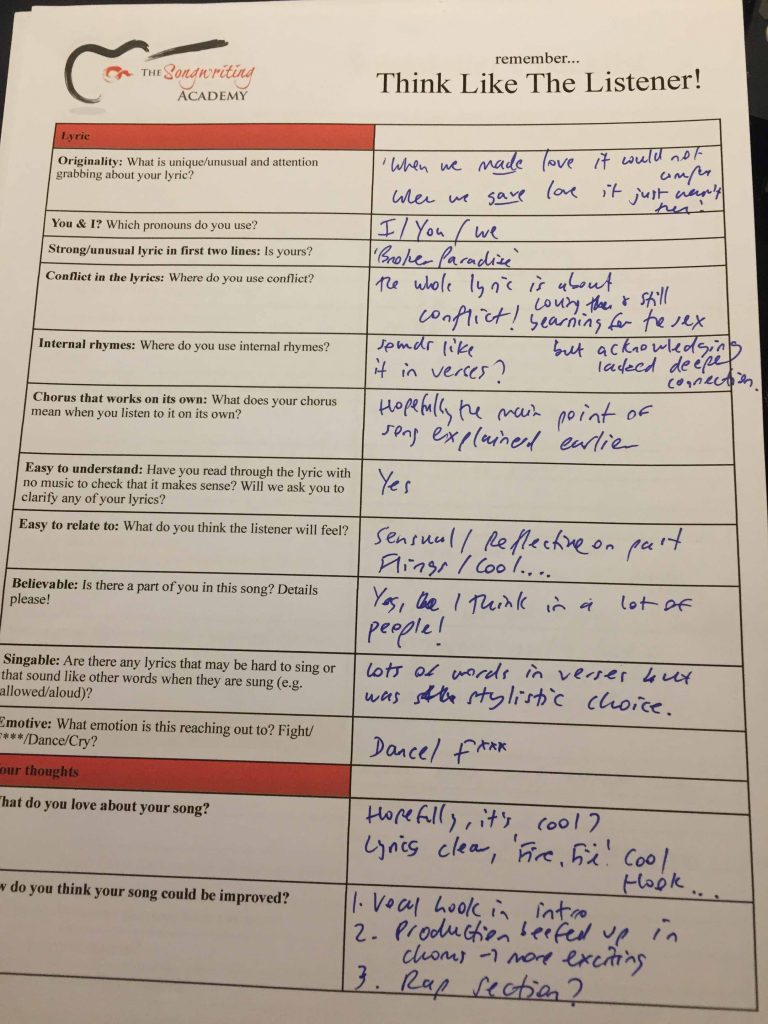 THE Songwriting
ACADEMY
remember...
Think Like The Listener!
Lyric
Originality: What is unique/unusual and attention
grabbing about your lyric?
'When we made love it could not
When we gave love it just wasn't
You & I? Which pronouns do you use?
I / You / we
Strong/unusual lyric in first two lines: Is yours?
'Broken Paradise'
Conflict in the lyrics: Where do you use conflict?
the whole lyric is about
conflict! loving them & still
yearning for the sex
but acknowledging
lacked deeper
connection.
Internal rhymes: Where do you use internal rhymes?
sounds like
it in verses?
Chorus that works on its own: What does your chorus
mean when you listen to it on its own?
Hopefully the main point of
song explained earlier
Easy to understand: Have you read through the lyric with
no music to check that it makes sense? Will we ask you to
clarify any of your lyrics?
Yes
Easy to relate to: What do you think the listener will feel?
Sensual / Reflective on past
Flings / Cool....
Believable: Is there a part of you in this song? Details
please!
Yes, I think in a lot of
people!
Singable: Are there any lyrics that may be hard to sing or
that sound like other words when they are sung (e.g.
allowed/aloud)?
Lots of words in verses but
was stylistic choice.
Emotive: What emotion is this reaching out to? Fight/
***/Dance/Cry?
Dance / F***
our thoughts
hat do you love about your song?
Hopefully, it's cool?
Lyrics clear, 'Fire, Fire' Cool
Hook...
w do you think your song could be improved?
1. Vocal hook in intro
2. Production beefed up in
chorus → more exciting
3. Rap section?